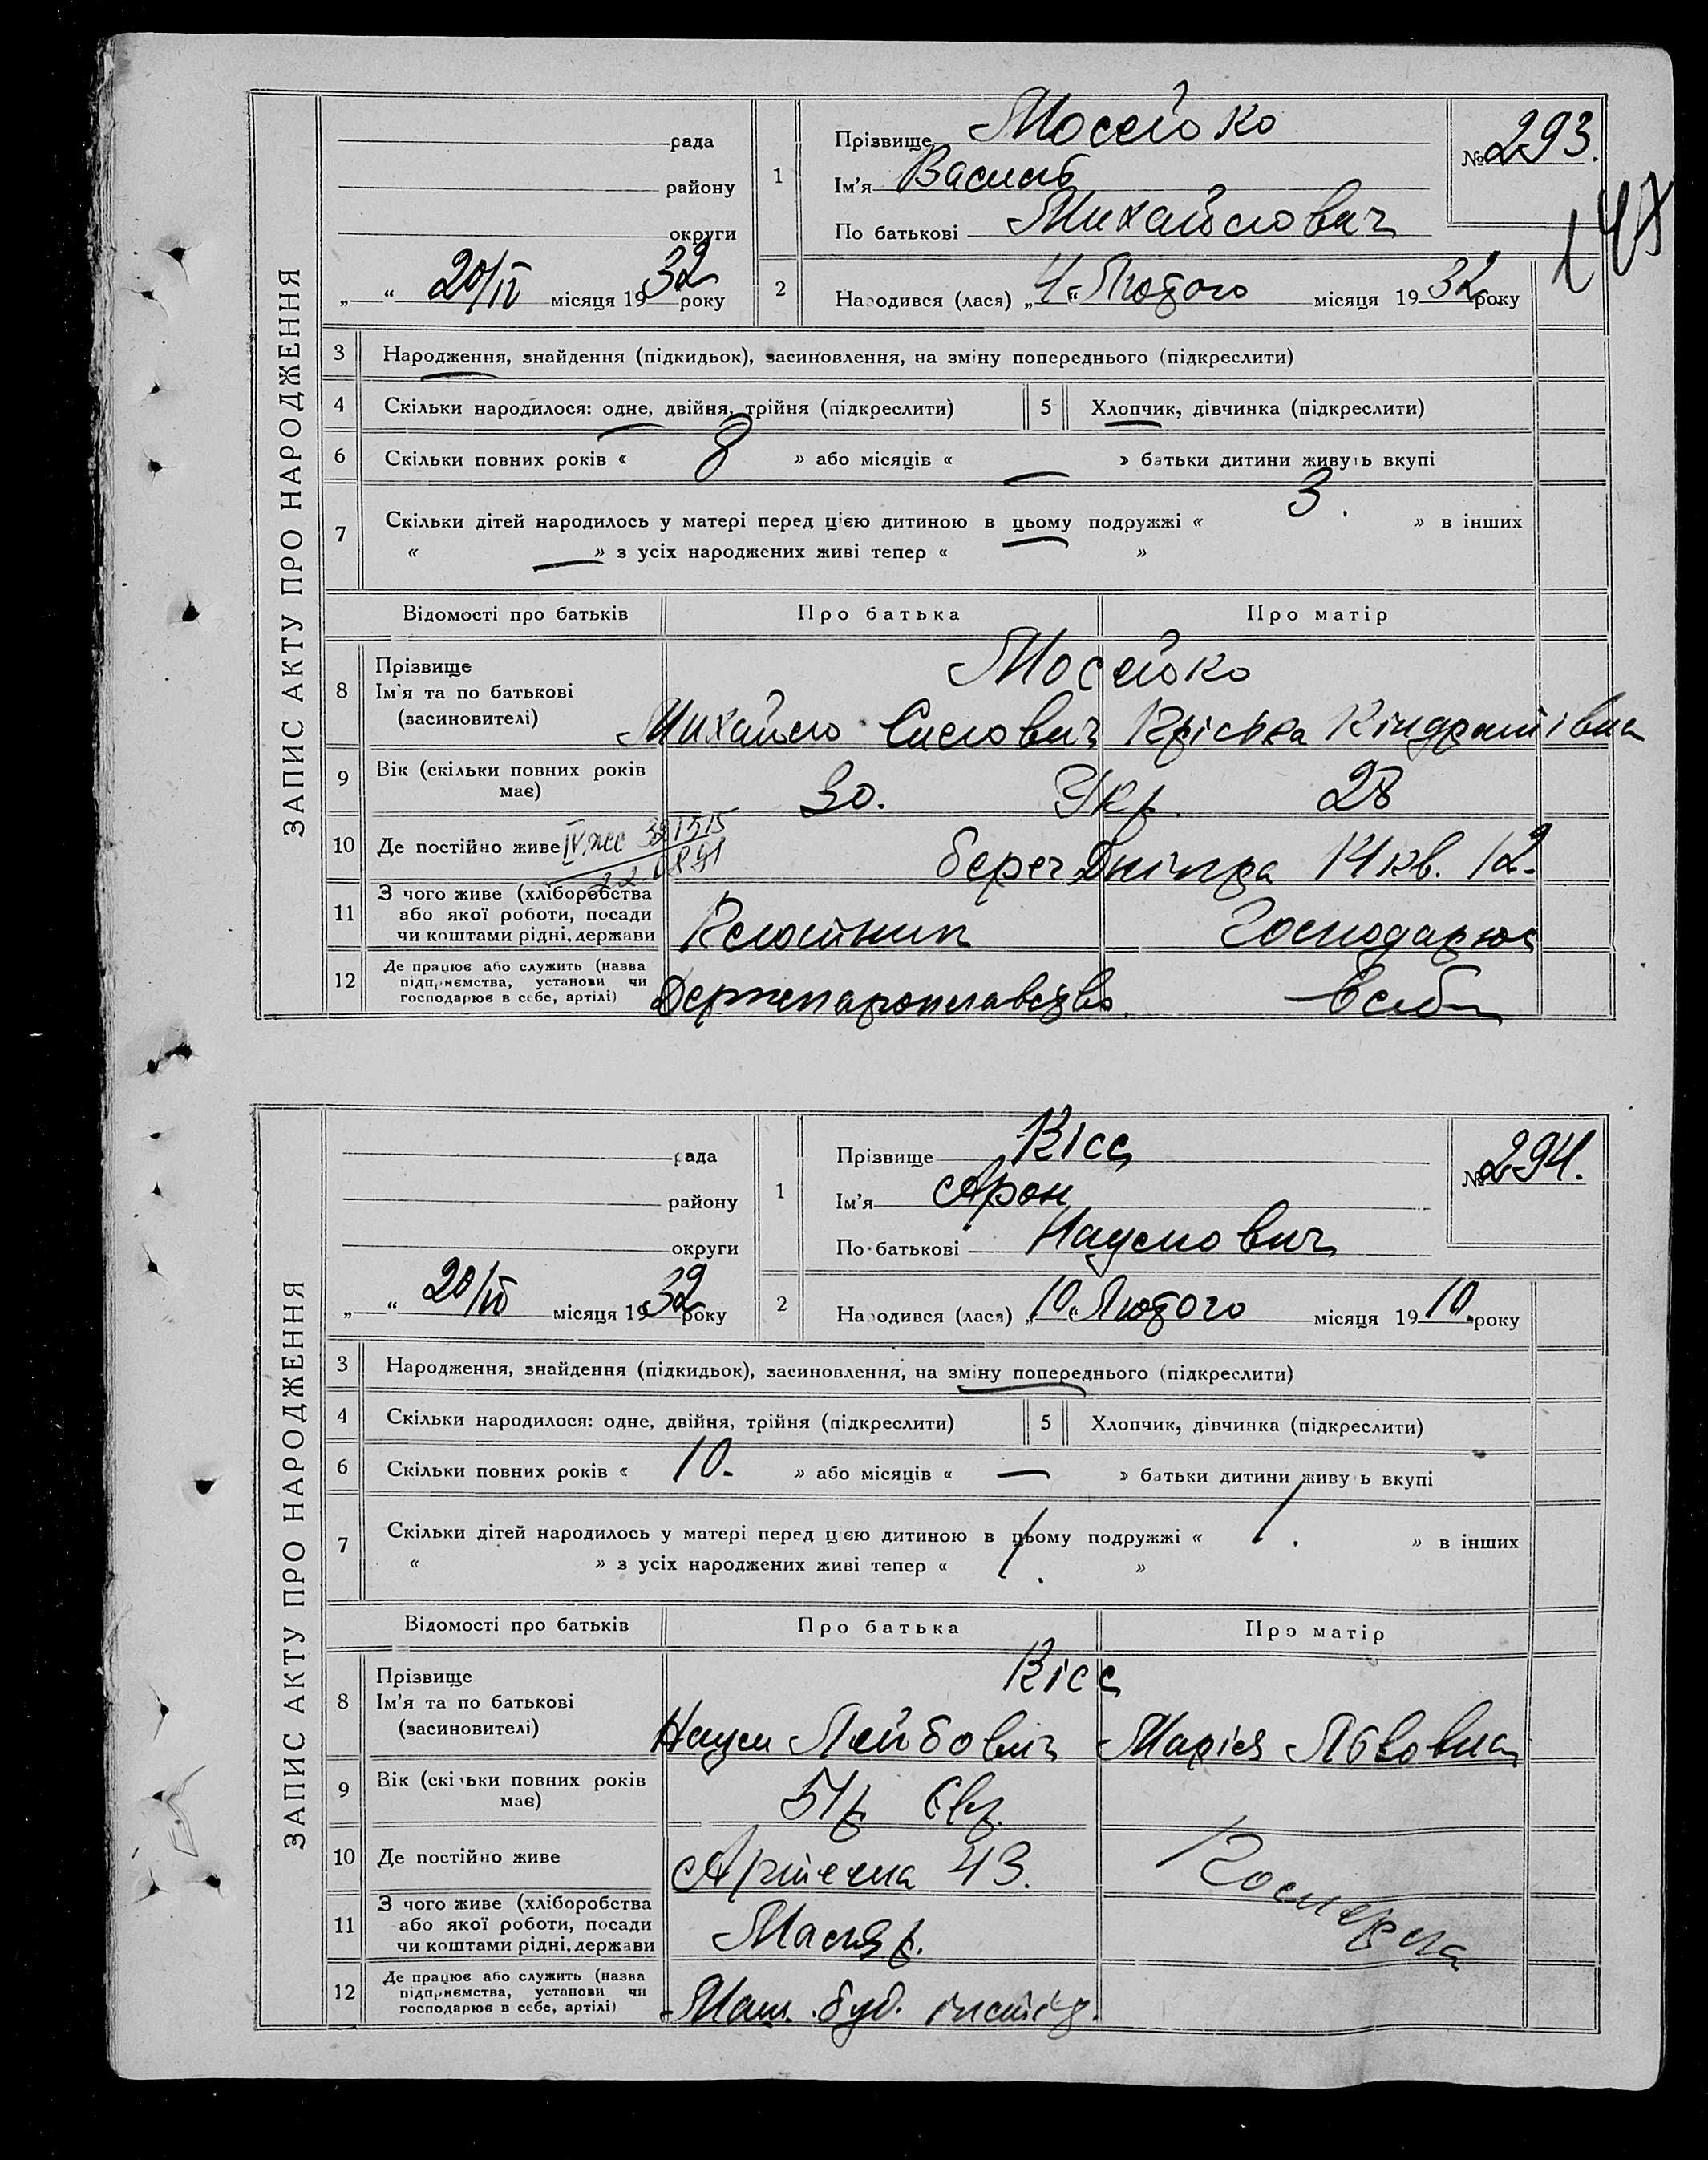 ЗАПИС АКТУ ПРО НАРОДЖЕННЯ
рада
району
округи
„ “ 20/IV місяця 1932 року
1
Прізвище Мосейко
Ім'я Василь
По батькові Михайлович
№ 293.
147
2
Народився (лася) „4“ Лютого місяця 1932 року
3 Народження, знайдення (підкидьок), засиновлення, на зміну попереднього (підкреслити)
4 Скільки народилося: одне, двійня, трійня (підкреслити)
5 Хлопчик, дівчинка (підкреслити)
6 Скільки повних років « 8 » або місяців « — » батьки дитини живуть вкупі
7 Скільки дітей народилось у матері перед цією дитиною в цьому подружжі « 3. » в інших
« — » з усіх народжених живі тепер « »
Відомості про батьків Про батька Про матір
8 Прізвище
Ім'я та по батькові
(засиновителі)
Мосейко
Михайло Кіндратівна
9 Вік (скільки повних років
має)
30. Укр. 28
10 Де постійно живе
берег Дніпра 14 кв. 12
11 З чого живе (хліборобства
або якої роботи, посади
чи коштами рідні, держави
Господарює
12 Де працює або служить (назва
підприємства, установи чи
господарює в себе, артілі)
Держпароплавство.
ЗАПИС АКТУ ПРО НАРОДЖЕННЯ
рада
району
округи
„ “ 20/IV місяця 1932 року
1
Прізвище Кісс
Ім'я Арон
По батькові Наумович
№ 294.
2
Народився (лася) „10“ Лютого місяця 1910. року
3 Народження, знайдення (підкидьок), засиновлення, на зміну попереднього (підкреслити)
4 Скільки народилося: одне, двійня, трійня (підкреслити)
5 Хлопчик, дівчинка (підкреслити)
6 Скільки повних років « 10. » або місяців « — » батьки дитини живуть вкупі
7 Скільки дітей народилось у матері перед цією дитиною в цьому подружжі « 1. » в інших
« » з усіх народжених живі тепер « 1. »
Відомості про батьків Про батька Про матір
8 Прізвище
Ім'я та по батькові
(засиновителі)
Кісс
Наум Лейбович Марія Львовна
9 Вік (скільки повних років
має)
51 р Євр.
10 Де постійно живе
Артема 43.
11 З чого живе (хліборобства
або якої роботи, посади
чи коштами рідні, держави
Маляр.
12 Де працює або служить (назва
підприємства, установи чи
господарює в себе, артілі)
Маш. буд. інстит.